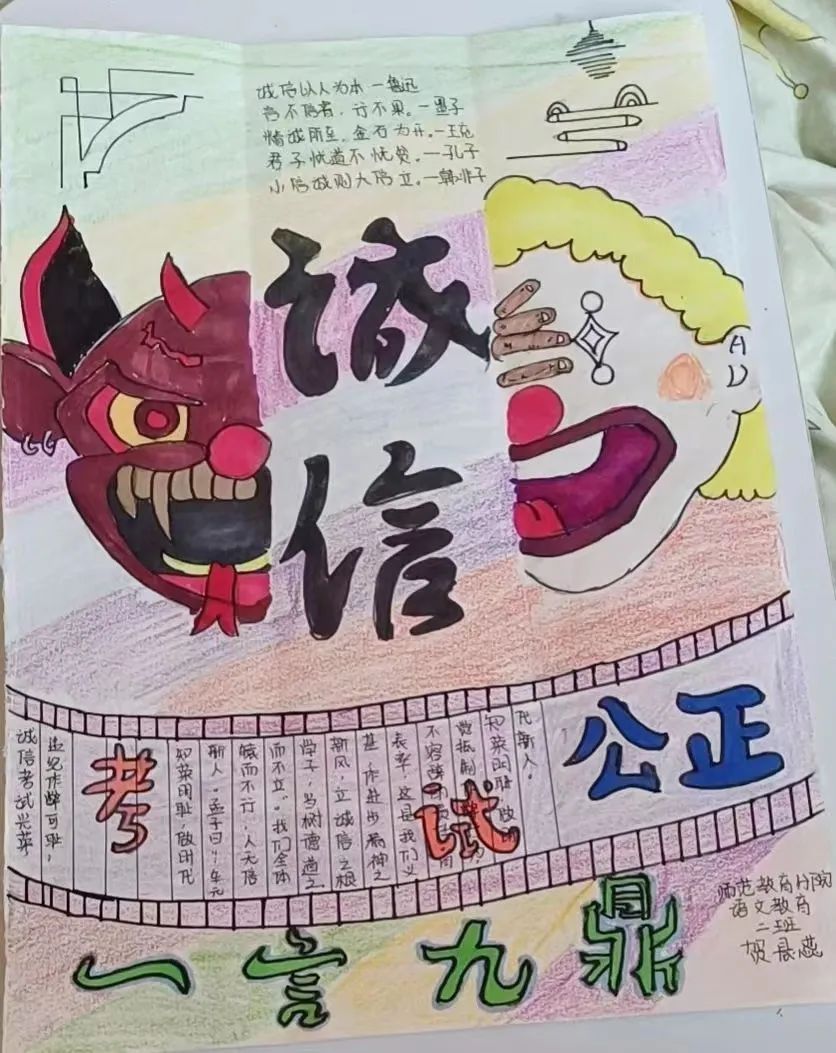 诚信以人为本一鲁迅
言不信者，行不果。一墨子
精诚所至，金石为开。一王充
君子忧道不忧贫。一孔子
小信诚则大信立。一韩非子
诚
信
A
D
代新人。
知荣明耻，做时
不容
表率，这是我们义
基，作进步精神之
新风，立诚信之根
学子，当树德道之
而不立。"我们全体
辊而不行，人无信
新人。孟子曰"车无
知荣明耻，做时代
考试
违纪作弊可耻，
诚信考试光荣
公正
一言九鼎
师范教育分院
语文教育
二班
贺